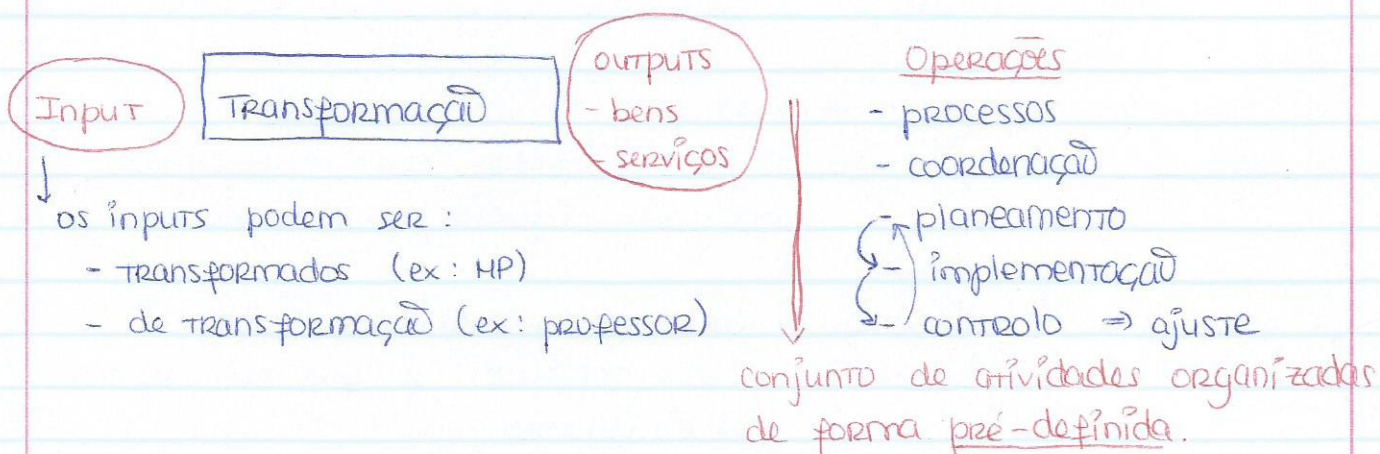 Input
Transformação
outputs
- bens
- serviços
os inputs podem ser:
- transformados (ex: MP)
- de transformação (ex: professor)
Operações
- processos
- coordenação
- planeamento
- implementação
- controlo ⇒ ajuste
conjunto de atividades organizadas
de forma pré-definida.